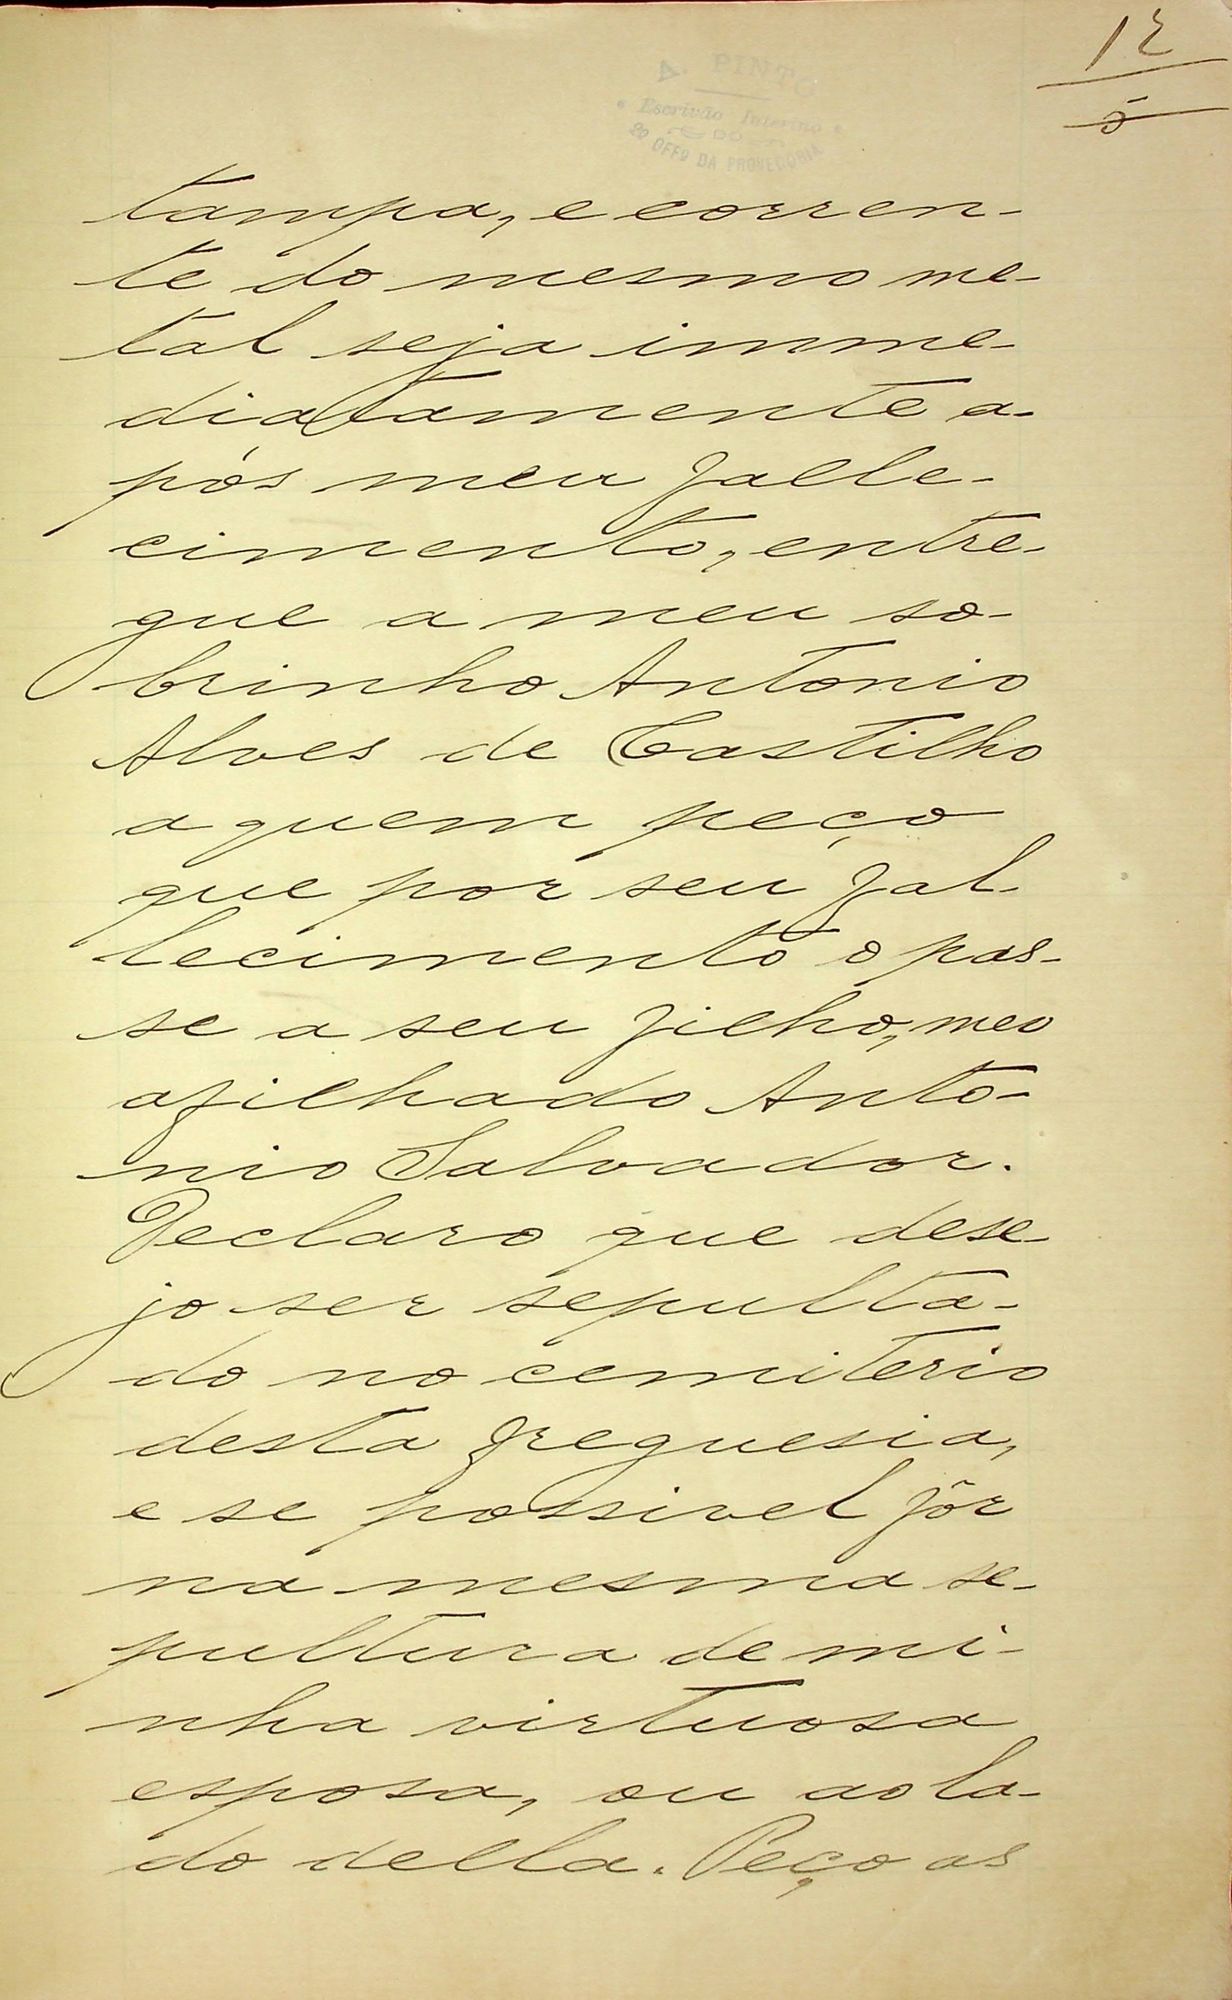 12
5
A. PINTO
Escrivão Interino
DO
2º OFFº DA PROVEDORIA
tampa, e corren-
te do mesmo me-
tal seja imme-
diatamente a-
pós meu falle-
cimento, entre-
gue a meu so-
brinho Antonio
Alves de Castilho
a quem peço
que por seu fal-
lecimento o pas-
se a seu filho, meo
afilhado Anto-
nio Salvador.
Declaro que dese-
jo ser sepulta-
do no cemiterio
desta freguesia,
e se possivel fôr
na mesma se-
pultura de mi-
nha virtuosa
esposa, ou ao la-
do della. Peço as